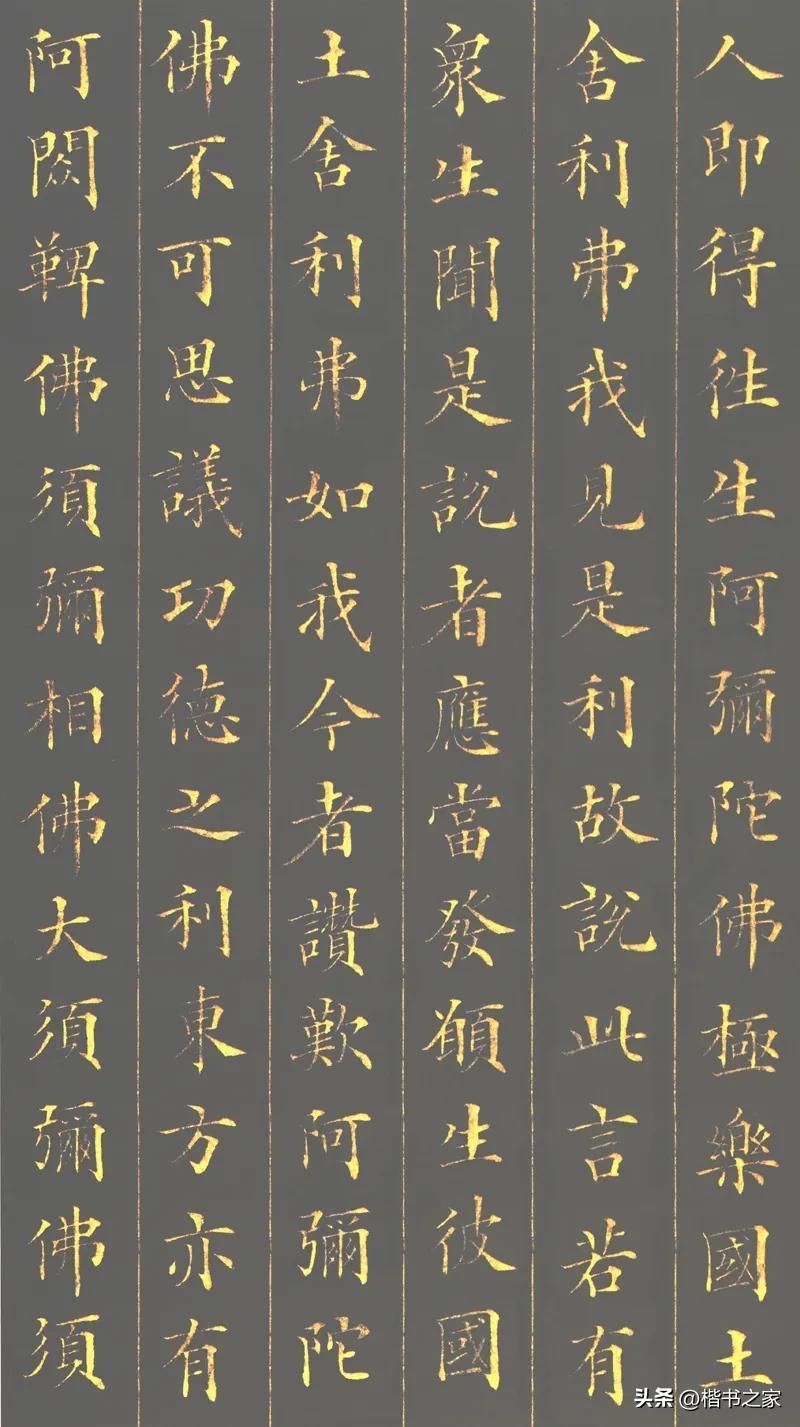 人即得往生阿彌陀佛極樂國土
舍利弗我見是利故說此言若有
衆生聞是說者應當發願生彼國
土舍利弗如我今者讚歎阿彌陀
佛不可思議功德之利東方亦有
阿閦鞞佛須彌相佛大須彌佛須
头条 @楷书之家